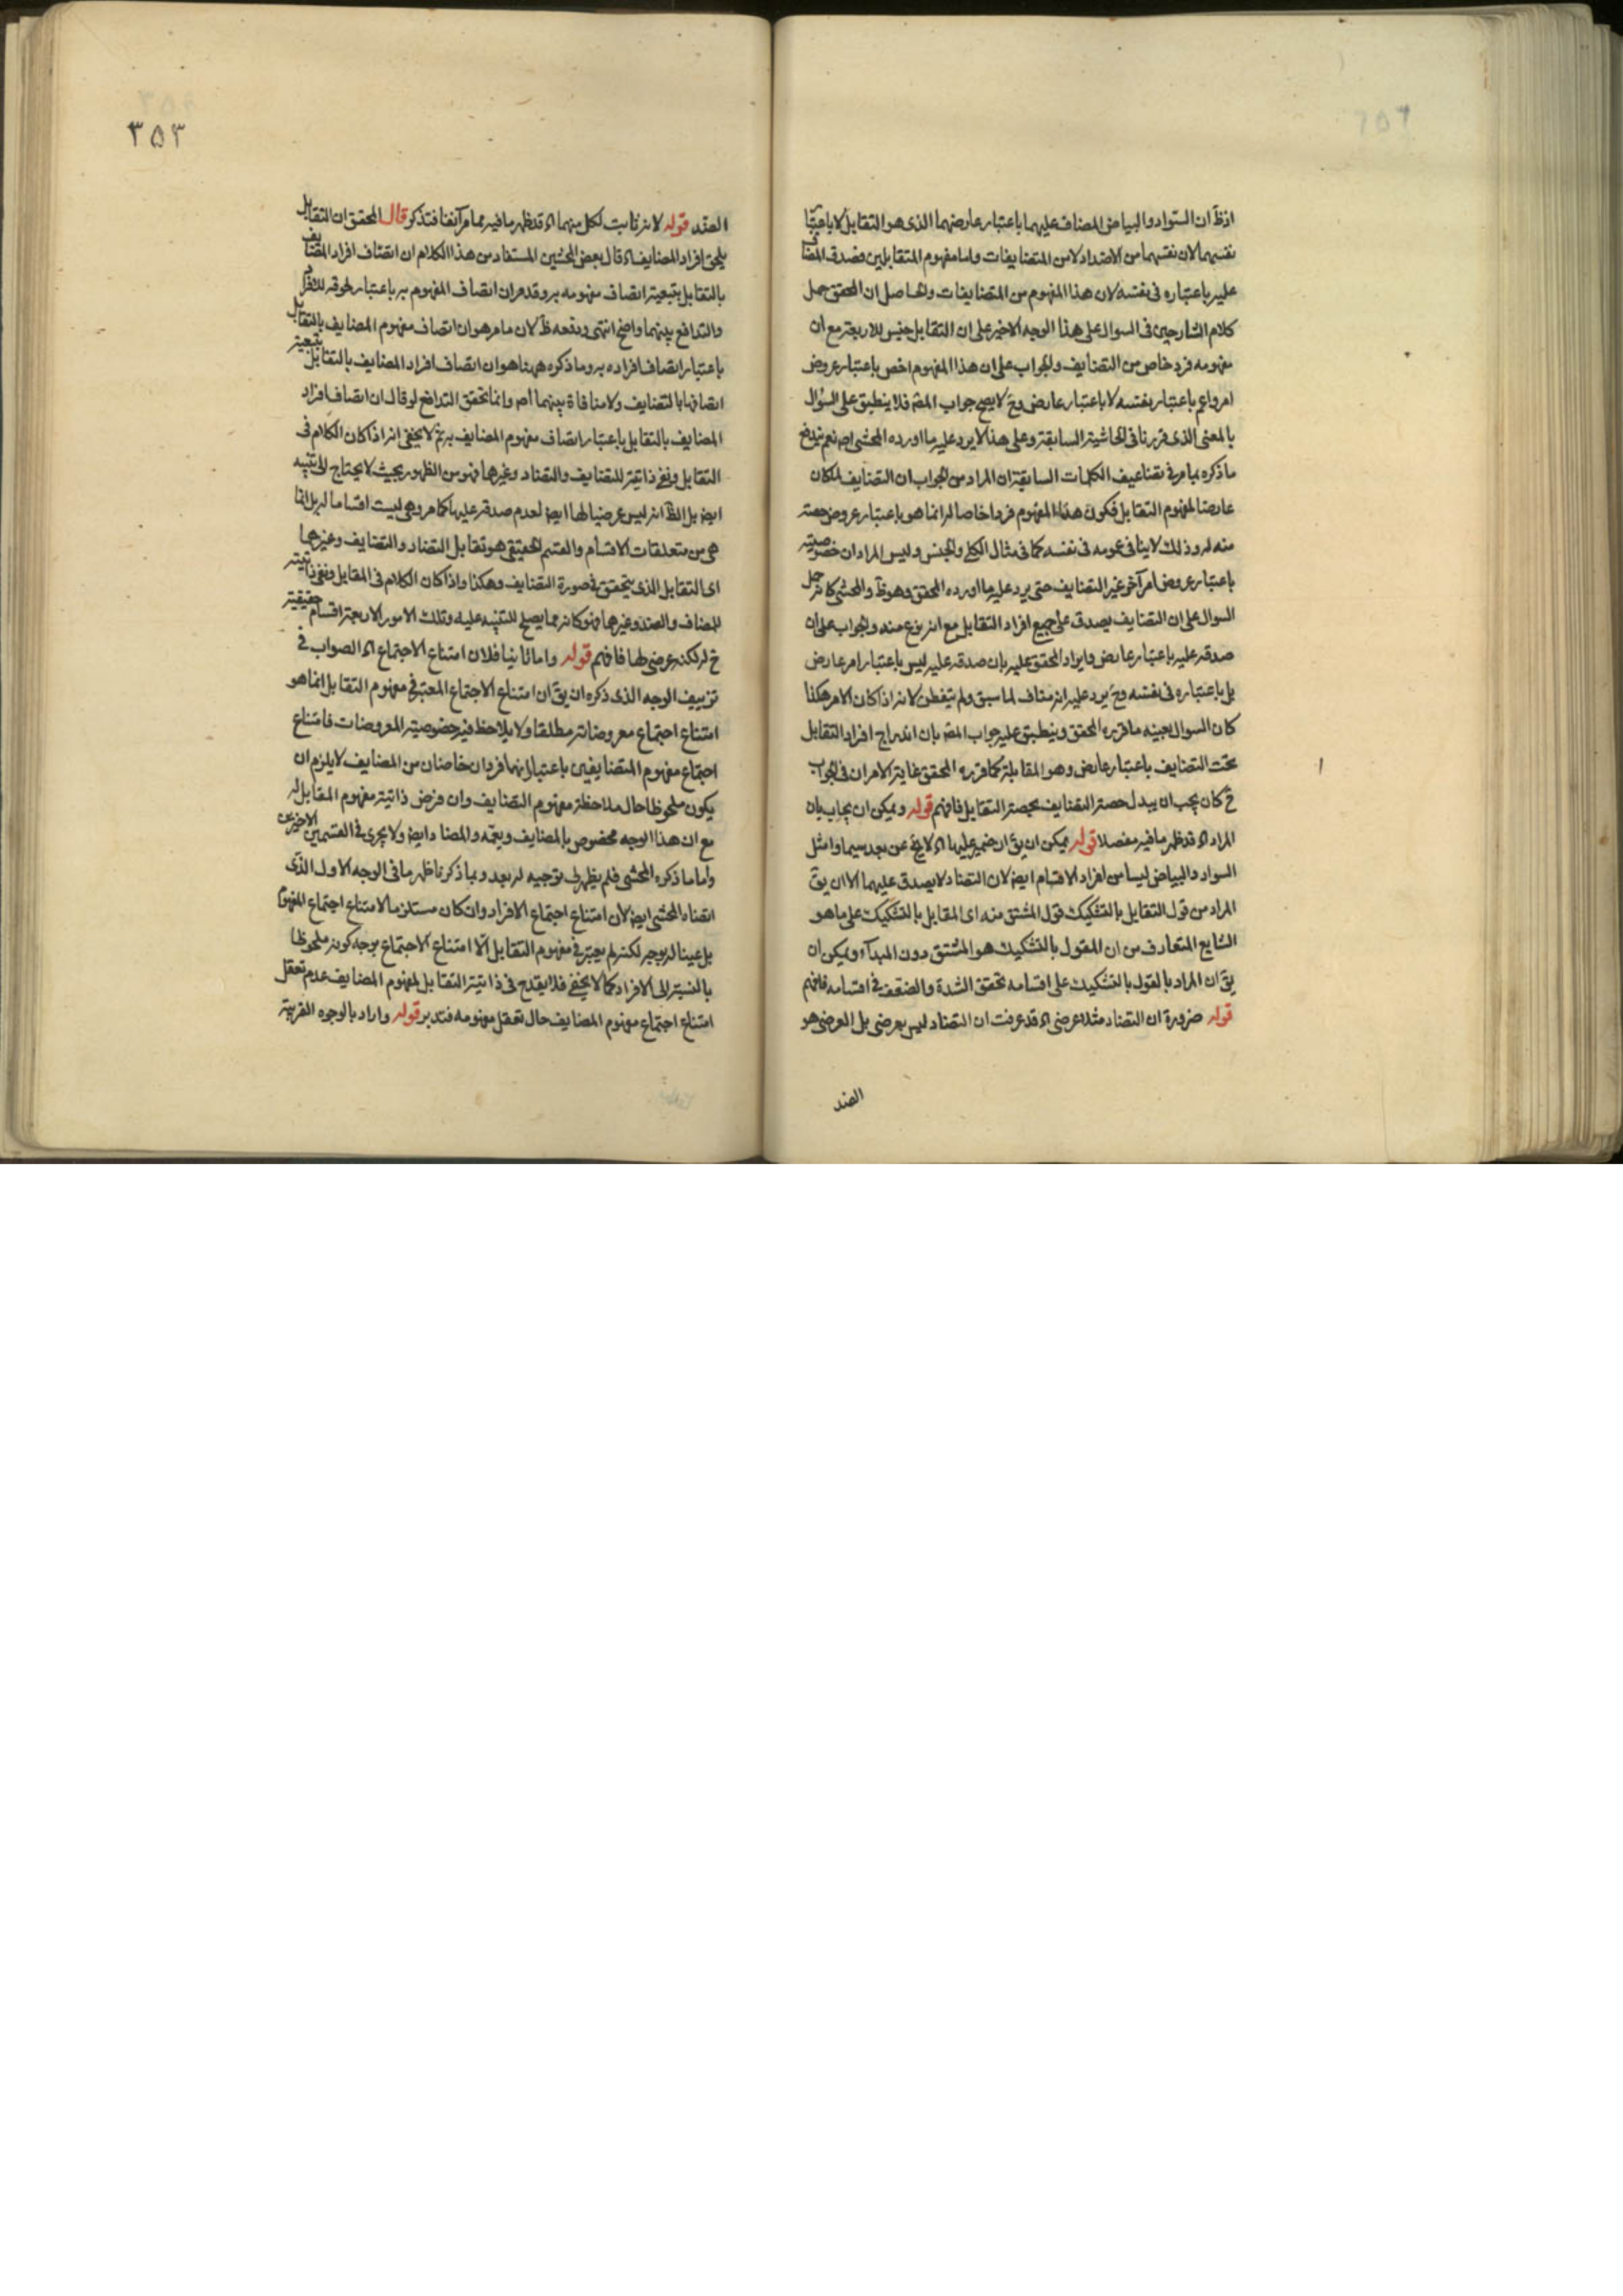 اذظ ان السواد والبياض المضاف عليهما باعتبار عارضهما الذى هو التقابل لا باعتبار
نفسهما لان نفسهما من الاضداد لا من المتضايفات واما مفهوم المتقابلين فصدق المضاف
عليه باعتباره فى نفسه لان هذا المفهوم من المتضايفات والحاصل ان المحقق حمل
كلام الشارحين فى السوال على هذا الوجه الاخير على ان التقابل جنس للاربعة مع ان
مفهومه فرد خاص من التضايف والجواب على ان هذا المفهوم اخص باعتبار عروض
امر واعم باعتبار نفسه لا باعتبار عارض وح لا يصح جواب المص فلا ينطبق على السؤال
بالمعنى الذى قررنا فى الحاشية السابقة وعلى هذا لا يرد عليه ما اورده المحشى اص نعم يندفع
ما ذكره بما مر فى تضاعيف الكلمات السابقة ان المراد من الجواب ان التضايف لمكان
عارضا لمفهوم التقابل فكون هذا المفهوم فردا خاصا له انما هو باعتبار عروض حصة
منه له وذلك لا ينافى عمومه فى نفسه كما فى مثال الكلى والجنس وليس المراد ان خصوصيته
باعتبار عروض امر آخر غير التضايف حتى يرد عليه ما اورده المحقق وهو ظ والمحشى كانه حمل
السوال على ان التضايف يصدق على جميع افراد التقابل مع انه نوع منه والجواب على ان
صدقه عليه باعتبار عارض وايراد المحقق عليه بان صدقه عليه ليس باعتبار امر عارض
بل باعتباره فى نفسه وح يرد عليه انه مناف لما سبق ولم يتفطن لانه اذا كان الامر هكذا
كان السوال بعينه ما قرره المحقق وينطبق عليه جواب المص بان اندراج افراد التقابل
تحت التضايف باعتبار عارض وهو المقابلة كما قرره المحقق غاية الامر ان فى الجواب
ح كان يجب ان يبدل حصة التضايف بحصة التقابل فافهم قوله ويمكن ان يجاب بان
المراد اه قد ظهر ما فيه مفصلا قوله يمكن ان يق ان ضمير عليها اه لا يخ عن بعد سيما وامثل
السواد والبياض ليسا من افراد الاقسام ايض لان التضاد لا يصدق عليهما الا ان يق
المراد من قول التقابل بالتشكيك قول المشتق منه اى المقابل بالتشكيك على ما هو
الشايع المتعارف من ان المقول بالتشكيك هو المشتق دون المبدأ ويمكن ان
يق ان المراد بالقول بالتشكيك على اقسامه تحقق الشدة والضعف فى اقسامه فافهم
قوله ضرورة ان التضاد مثلا عرضى اه قد عرفت ان التضاد ليس بعرضى بل العرضى هو
الضد
٣٥٣
الضد قوله لانه ثابت لكل منهما اه قد ظهر ما فيه مما مر آنفا فتذكر قال المحقق ان التقابل
يلحق افراد المضايف اه قال بعض المحشين المستفاد من هذا الكلام ان اتصاف افراد المضايف
بالتقابل بتبعية اتصاف مفهومه به وقد مر ان اتصاف المفهوم به باعتبار لحوقه للافراد
والتدافع بينهما واضح انتهى ودفعه ظ لان ما مر هو ان اتصاف مفهوم المضايف بالتقابل
باعتبار اتصاف افراده به وما ذكره ههنا هو ان اتصاف افراد المضايف بالتقابل بتبعية
اتصافها بالتضايف ولا منافاة بينهما اص وانما تحقق التدافع لو قال ان اتصاف افراد
المضايف بالتقابل باعتبار اتصاف مفهوم المضايف به ثم لا يخفى انه اذا كان الكلام فى
التقابل ونفى ذاتيته للتضايف والتضاد وغيرها فهو من الظهور بحيث لا يحتاج الى تنبيه
ايض بل الظ انه ليس عرضيا لها ايض لعدم صدقه عليها كما مر وهى ليست اقساما له بل انما
هى من متعلقات الاقسام والقسم الحقيقى هو تقابل التضاد والتضايف وغيرهما
اى التقابل الذى يتحقق فى صورة التضايف وهكذا واذا كان الكلام فى المقابل ونفى ذاتيته
للمضاف والضد وغيرها فهو كانه مما يصلح للتنبيه عليه وتلك الامور الاربعة اقسام حقيقية
ح له لكنه عرضى لها فافهم قوله واما ثانيا فلان امتناع الاجتماع اه الصواب فى
تزييف الوجه الذى ذكره ان يق ان امتناع الاجتماع المعتبر فى مفهوم التقابل انما هو
امتناع اجتماع معروضاته مطلقا ولا يلاحظ فيه خصوصية المعروضات فامتناع
اجتماع مفهوم المتضايفين باعتبار انهما فردان خاصان من المضايف لا يلزم ان
يكون ملحوظا حال ملاحظة مفهوم التضايف وان فرض ذاتية مفهوم المقابل له
مع ان هذا الوجه مخصوص بالمضايف ويعمه والمضاد ايض ولا يجرى فى القسمين الاخيرين
واما ما ذكره المحشى فلم يظهر لى توجيه له بعد وبما ذكرنا ظهر ما فى الوجه الاول الذى
افاد المحشى ايض لان امتناع اجتماع الافراد وان كان مستلزما لامتناع اجتماع المفهوم
بل عينا له بوجه لكنه لم يعتبر فى مفهوم التقابل الا امتناع الاجتماع بوجه كونه ملحوظا
بالنسبة الى الافراد كما لا يخفى فلا يقدح فى ذاتية التقابل لمفهوم المضايف عدم تعقل
امتناع اجتماع مفهوم المضايف حال تعقل مفهومه فتدبر قوله واراد بالوجوه القريبة